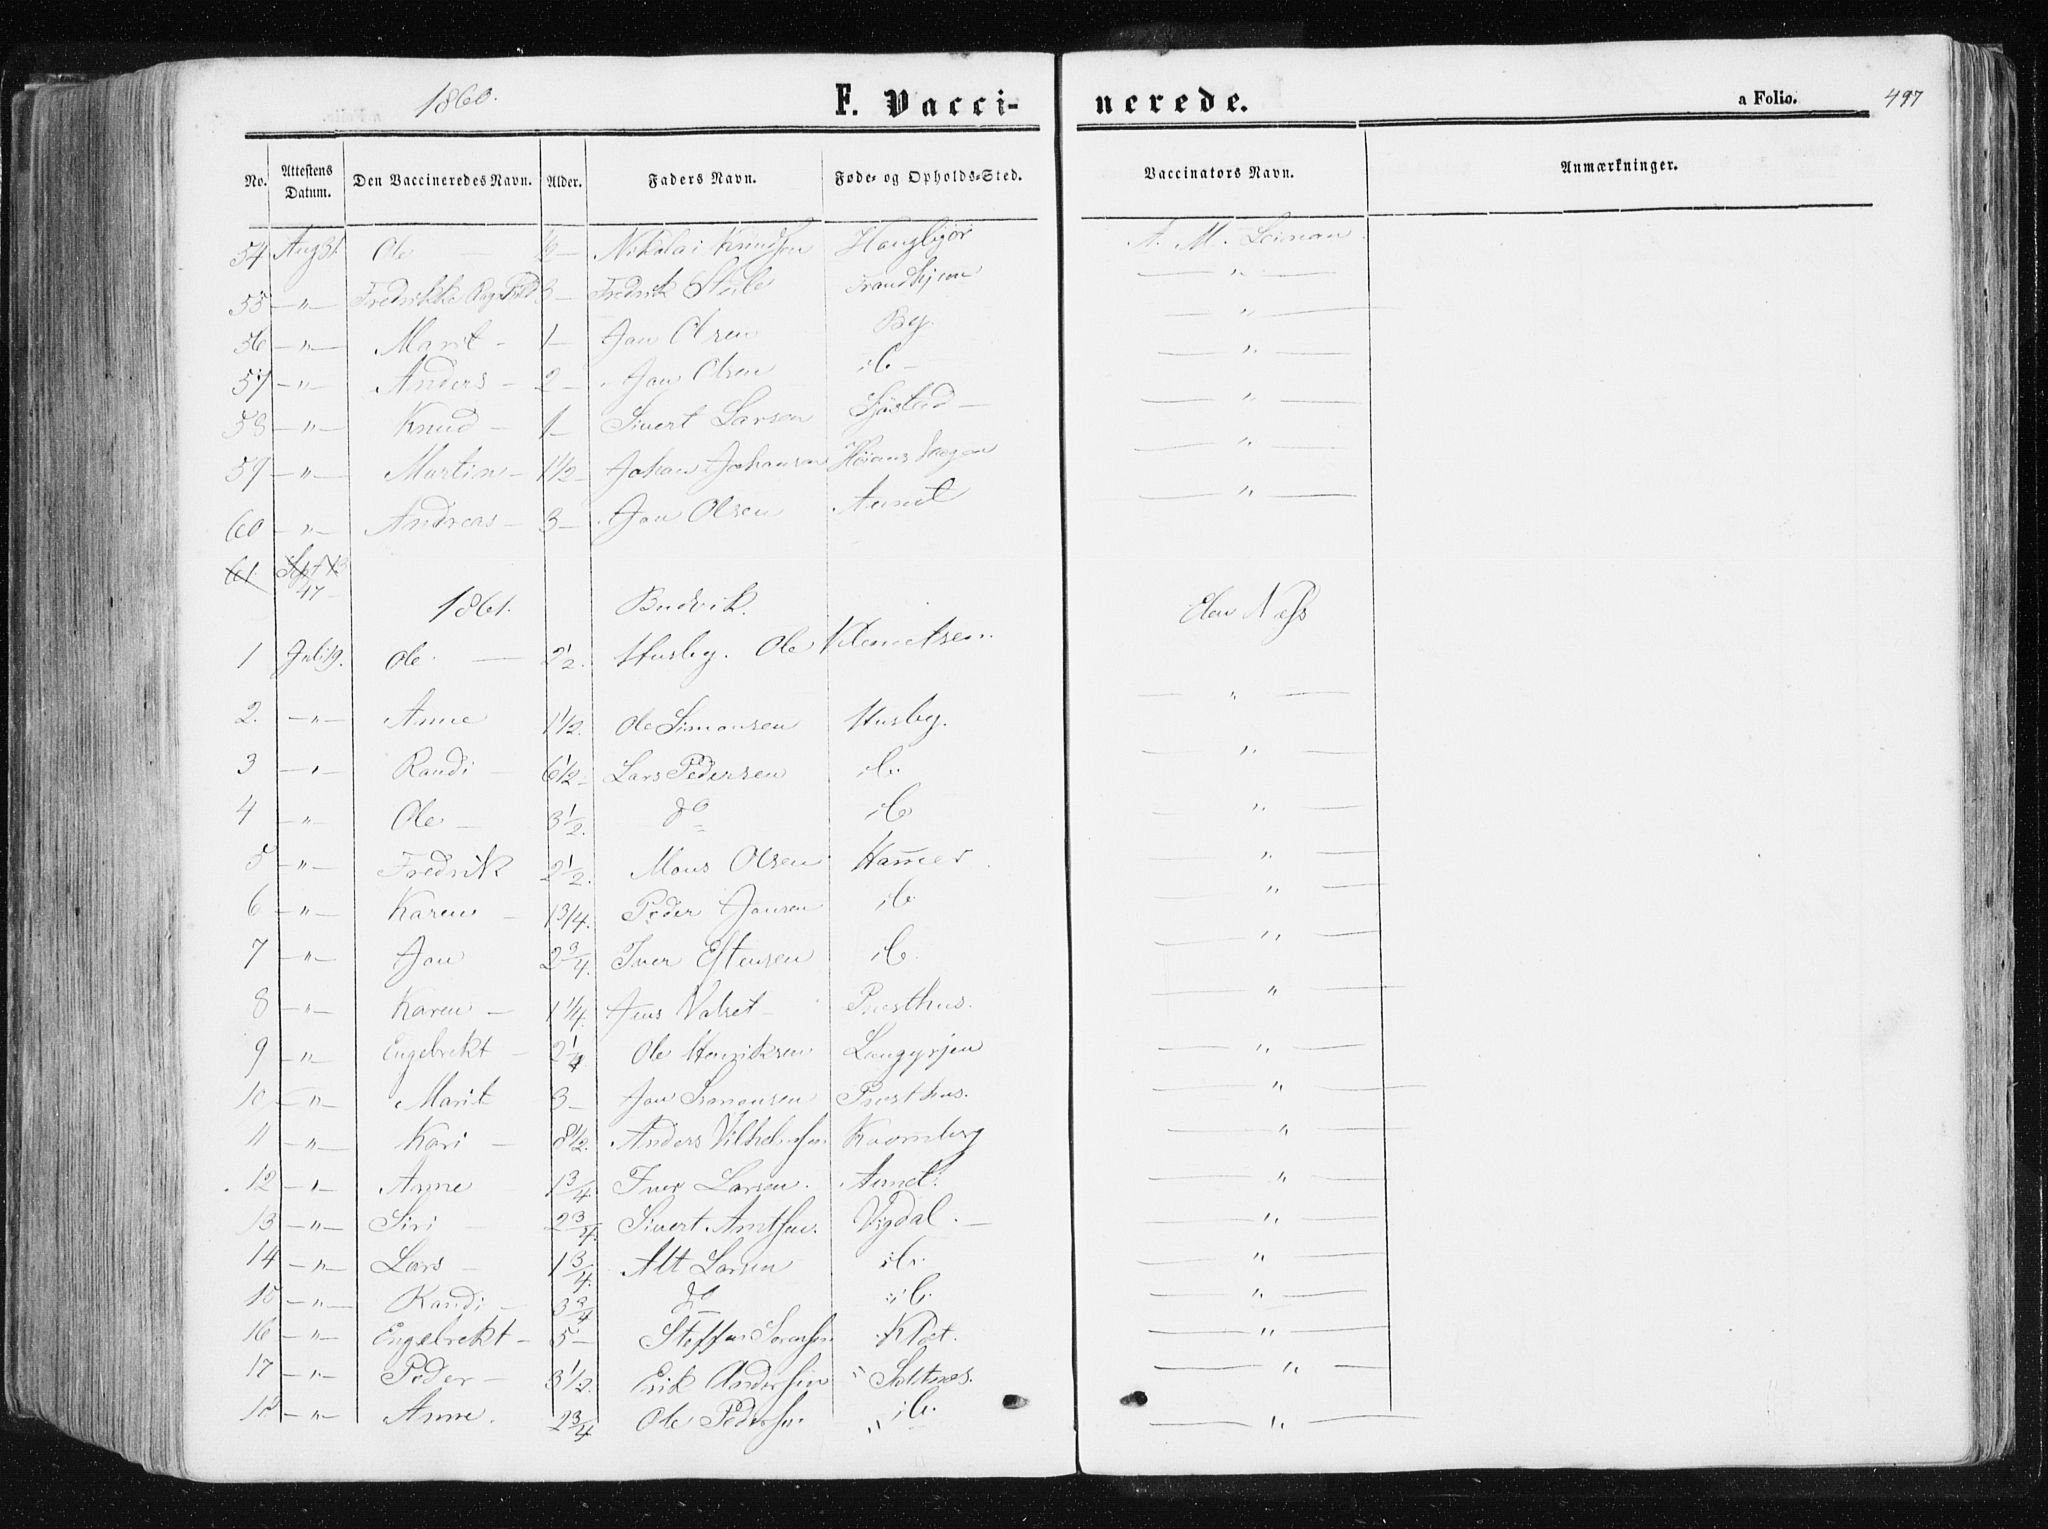 1860. F. Vacci- nerede. a Folio. 497
No. Attestens Datum. Den Vaccineredes Navn. Alder. Faders Navn. Føde- og Opholds-Sted. Vaccinators Navn. Anmærkninger.
54 Aug 31 Ole — Nikolai Knudsen A. M.
55 —"— Fredrikke 3— Fredrik Trondhjem —"—
56 —"— Marit — 1— Jon Olsen By —"—
57 —"— Anders — 2— Jon Olsen ib— —"—
58 —"— Knud — 1— Sivert Larsen Sjøstad— —"—
59 —"— Martin — 1½— Johan Johansen —"—
60 —"— Andreas — 3— Jon Olsen Aunet —"—
61. Sept
47
1861. Budvik. Elen Næss
1 Juli 19. Ole. — 2½. Husby. Ole
2. —"— Anne 1½. Ole Simonsen Husby. —"—
3 —"— Randi — 6½— Lars Pedersen ib. —"—
4 —"— Ole — 3½. do ib —"—
5 —"— Fredrik 2½. Mons Olsen Hamer —"—
6 —"— Karen — 1¾. Peder Jonsen ib —"—
7 —"— Jon 2¾. Iver Estensen ib. —"—
8 —"— Karen — 1¼. Jens Valset — Præsthus. —"—
9 —"— Engebrekt — 2¼ Ole Henriksen —"—
10 —"— Marit 3— Jon Simonsen Præsthus. —"—
11 —"— Kari — 8½. Anders Vilhelmsen —"—
12 —"— Anne 1¾. Iver Larsen. Aunet. —"—
13 —"— Siri — 2¾. Sivert Arntsen. Vigdal. — —"—
14 —"— Lars — 1¾. Alt Larsen ib. —"—
15 —"— Randi — 3¾ do ib. —"—
16 —"— Engebrekt — 5— Steffen Sørensen —"—
17 —"— Peder — 3½. Erik Andersen Saltnes. —"—
18 —"— Anne. 2¾ Ole Pedersen ib. —"—